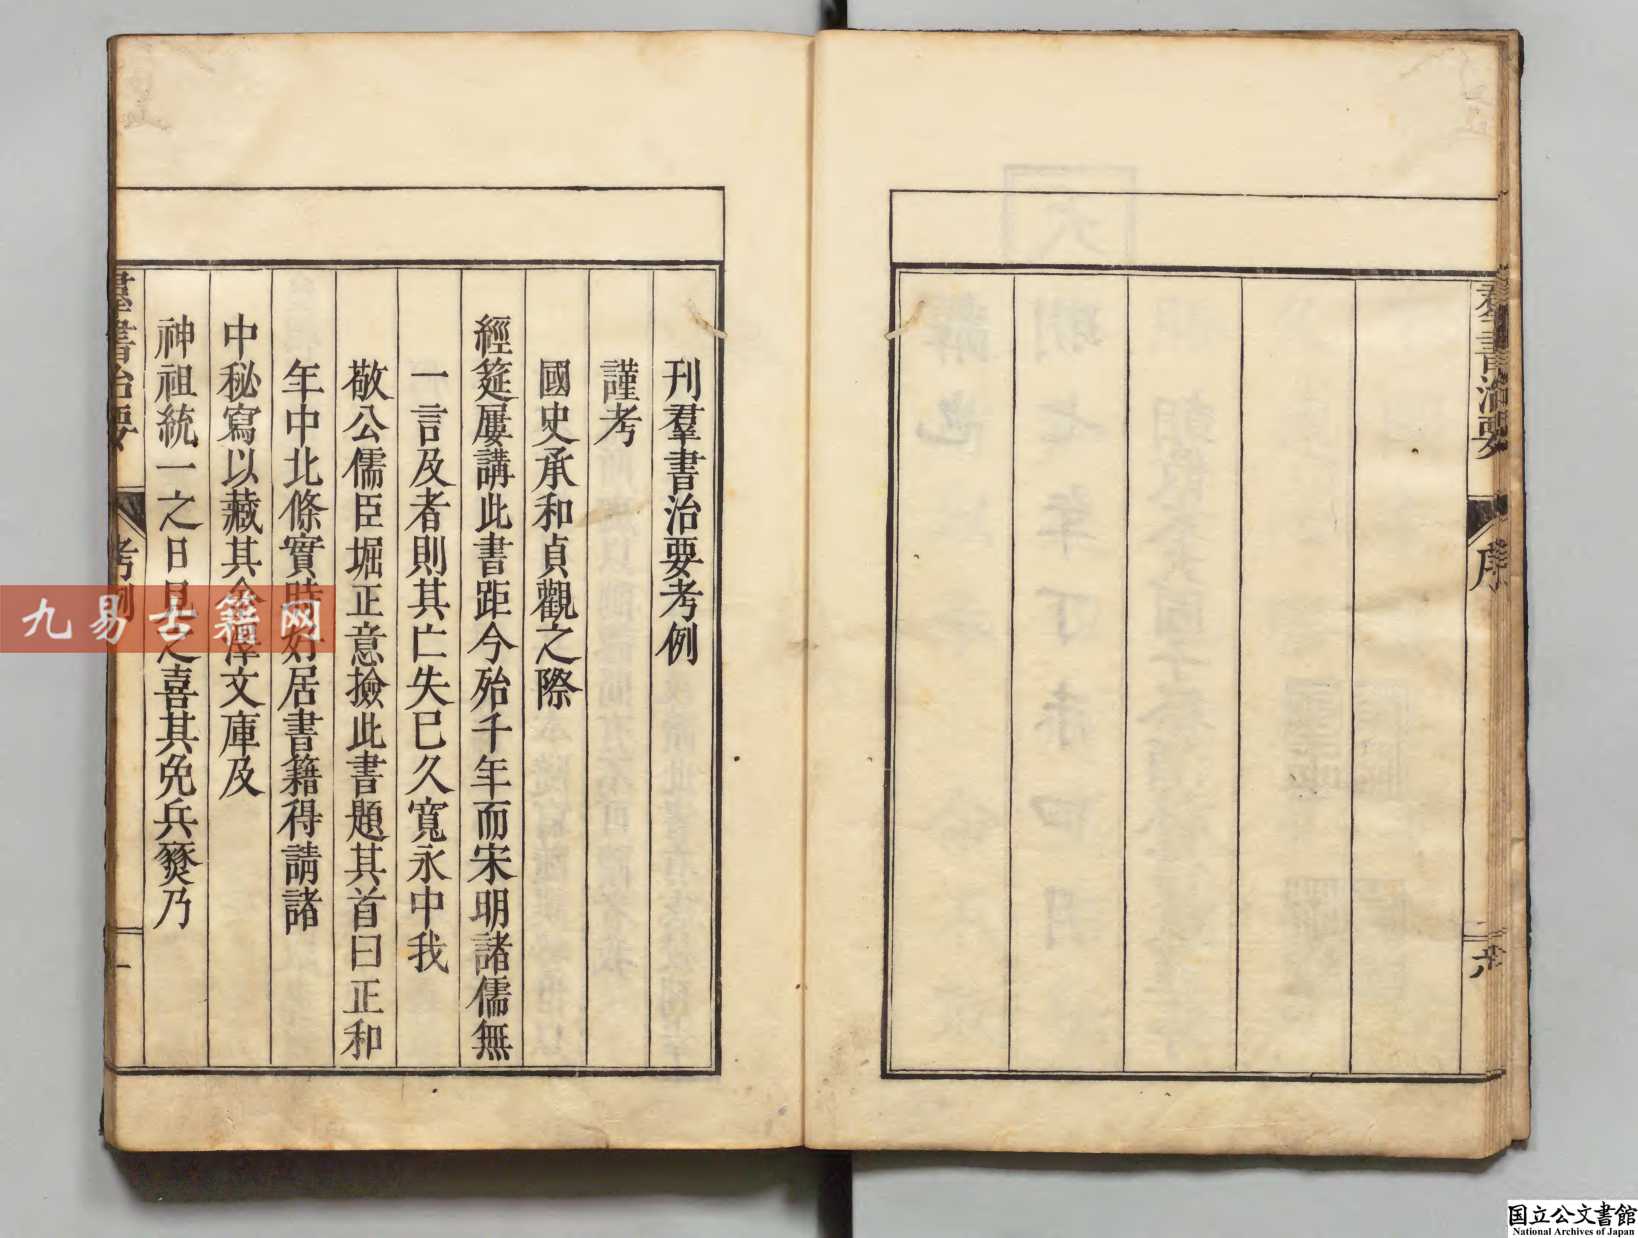 羣書治要
序
六
刊羣書治要考例
謹考
國史承和貞觀之際
經筵屢講此書距今殆千年而宋明諸儒無
一言及者則其亡失已久寬永中我
敬公儒臣堀正意撿此書題其首曰正和
年中北條實時好居書籍得請諸
中秘寫以藏其金澤文庫及
神祖統一之日見之喜其免兵燹乃
羣書治要
考例
一
九易古籍网
国立公文書館
National Archives of Japan